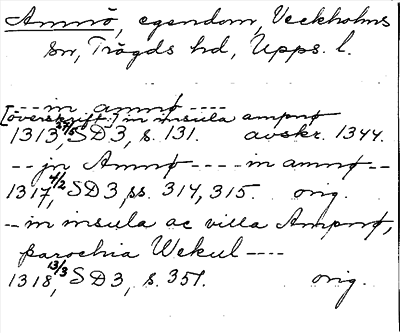 Ammö, egendom, Veckholms
sn, Trögds hd, Upps. l.
---in amnø----
[överskrift:] in insula ampnø
1313 29/5, SD3, s. 131. avskr. 1344.
-- jn Amnø ---- in amnø --
1317 4/2, SD3, ss. 314, 315. orig.
-- in insula ac villa Ampnø,
parochia Wekul ----
1318 13/3, SD3, s. 351. orig.